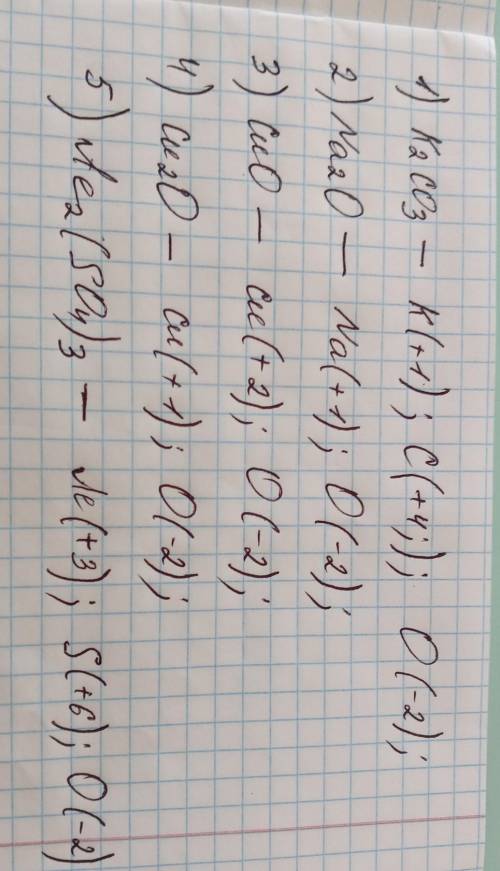 1) K2CO3 – K(+1); C(+4;); O(-2);
2) Na2O – Na(+1); O(-2);
3) CuO – Cu(+2); O(-2);
4) Cu2O – Cu(+1); O(-2);
5) Fe2(SO4)3 – Fe(+3); S(+6); O(-2)